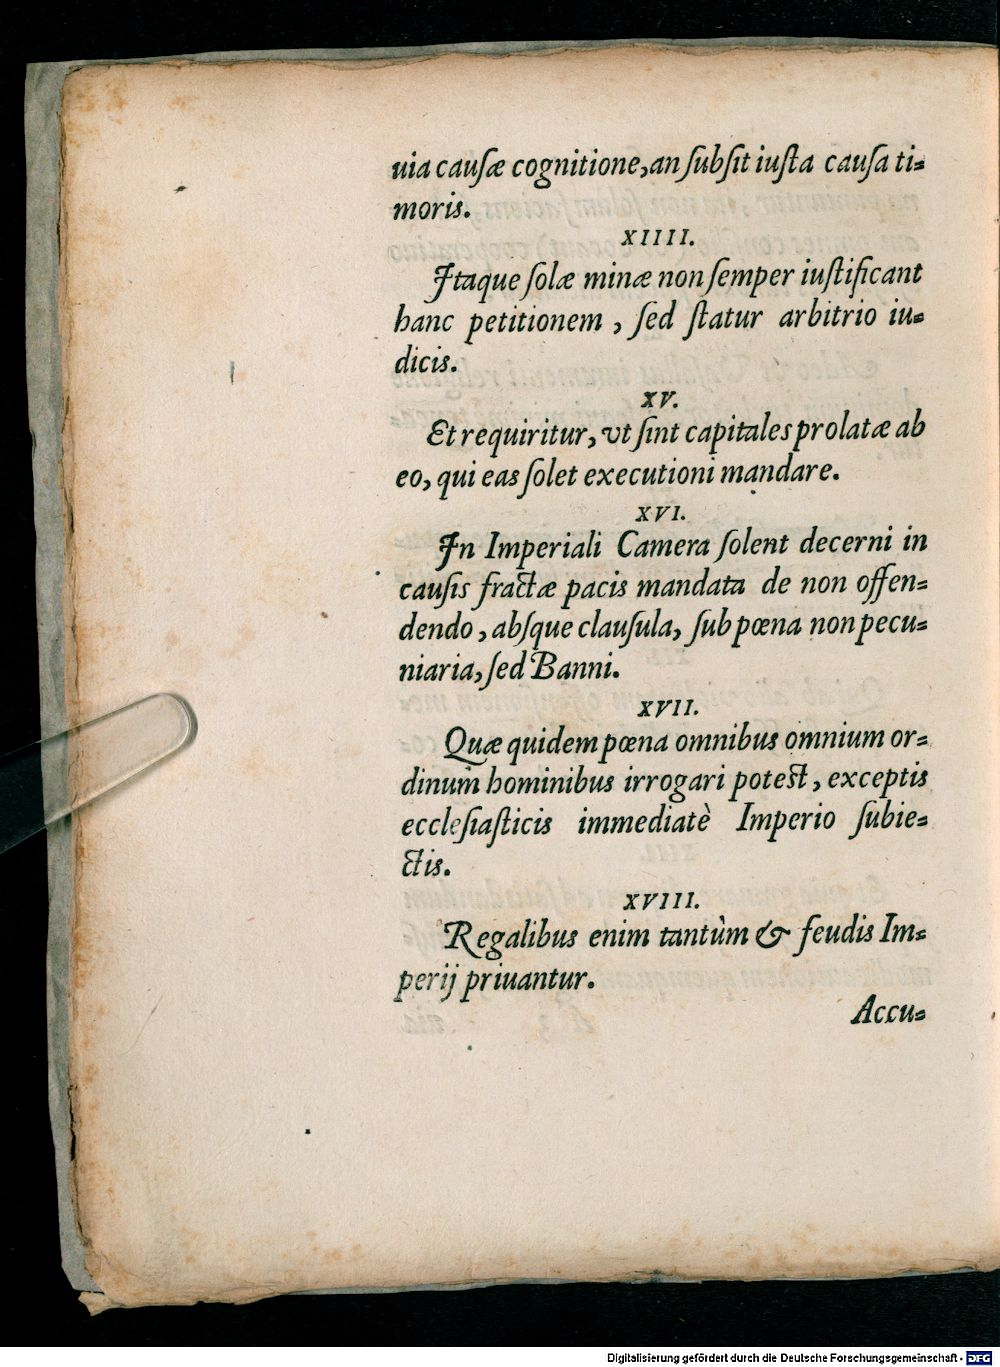 uia cauſæ cognitione, an ſubſit iuſta cauſa ti-
moris.
XIIII.
Itaque ſolæ minæ non ſemper iuſtificant
hanc petitionem, ſed ſtatur arbitrio iu-
dicis.
XV.
Et requiritur, vt ſint capitales prolatæ ab
eo, qui eas ſolet executioni mandare.
XVI.
In Imperiali Camera ſolent decerni in
cauſis fractæ pacis mandata de non offen-
dendo, abſque clauſula, ſub pœna non pecu-
niaria, ſed Banni.
XVII.
Quæ quidem pœna omnibus omnium or-
dinum hominibus irrogari poteſt, exceptis
eccleſiaſticis immediatè Imperio ſubie-
ctis.
XVIII.
Regalibus enim tantùm & feudis Im-
perij priuantur.
Accu-
Digitalisierung gefördert durch die Deutsche Forschungsgemeinschaft - DFG